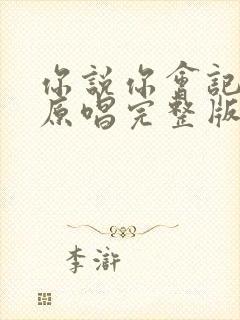 你說你會記
原唱完整版
李滸